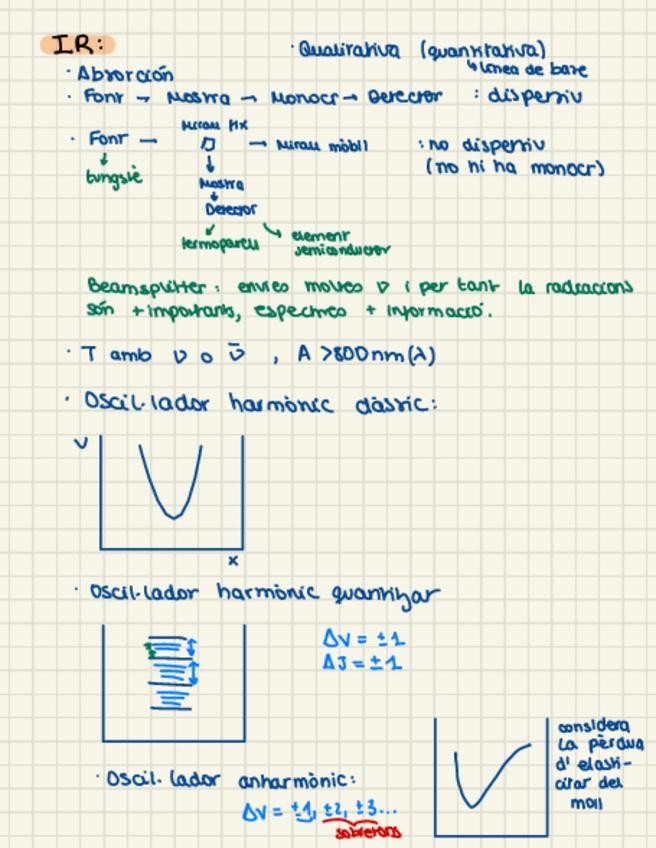 IR:
· Qualitativa (quantitativa)
↳ línea de base
· Absorción
· Font → Mostra → Monocr → Detector : dispersiu
Mirall fix
· Font → → Mirall mòbil : no dispersiu
(no hi ha monocr)
tungstè
Mostra
Detector
termoparell
element
semiconductor
Beamsplitter: envies moltes ν i per tant la radiacions
són + importants, espectres + informació.
· T amb ν o ν̄ , A >800nm (λ)
· Oscil·lador harmònic clàssic:
V
x
· Oscil·lador harmònic quantitzat
ΔV = ±1
ΔJ = ±1
considera
la pèrdua
d'elasti-
citat del
moll
· Oscil·lador anharmònic:
ΔV = ±1, ±2, ±3...
sobretons